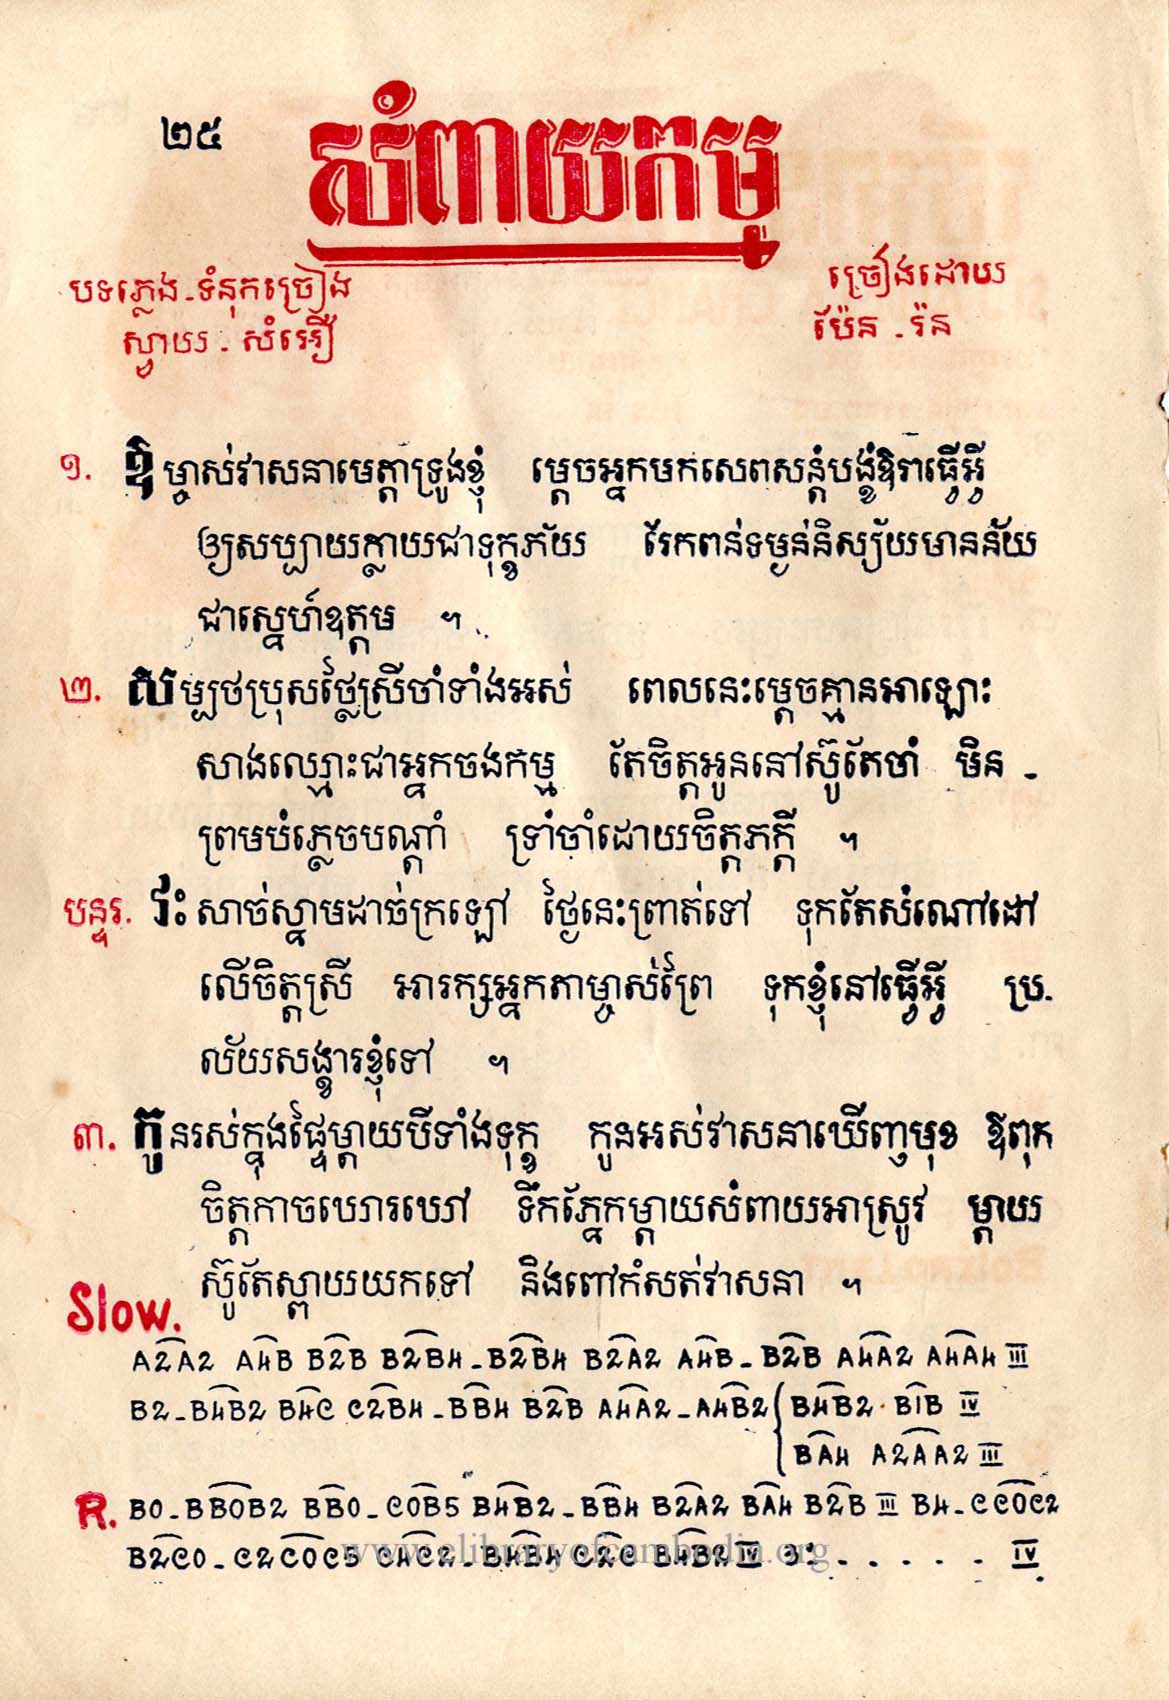 ២៥
សំពាយកម្ម
បទភ្លេង - ទំនុកច្រៀង
ស្វាយ - សំអឿ
ច្រៀងដោយ
ប៉ែន - រ៉ន
១. ឱ ម្ចាស់វាសនាមេត្តាទ្រូងខ្ញុំ ម្ដេចអ្នកមកសេពសន្ដំបង្ខំឱរាធ្វើអ្វី
ឲ្យសប្បាយក្លាយជាទុក្ខភ័យ រែកពន់ទម្ងន់និស្ស័យមានន័យ
ជាស្នេហ៍ឧត្ដម ។
២. សម្បថប្រុសថ្លៃស្រីចាំទាំងអស់ ពេលនេះម្ដេចគ្មានអាឡោះ
សាងឈ្មោះជាអ្នកចងកម្ម តែចិត្តអូននៅស៊ូតែចាំ មិន -
ព្រមបំភ្លេចបណ្ដាំ ទ្រាំចាំដោយចិត្តភក្ដី ។
បន្ទរ. វះសាច់ស្នាមដាច់ក្រឡៅ ថ្ងៃនេះព្រាត់ទៅ ទុកតែសំណៅដៅ
លើចិត្តស្រី អារក្សអ្នកតាម្ចាស់ព្រៃ ទុកខ្ញុំនៅធ្វើអ្វី ប្រ.
ល័យសង្ខារខ្ញុំទៅ ។
៣. កូនរស់ក្នុងផ្ទៃម្ដាយបីទាំងទុក្ខ កូនអស់វាសនាឃើញមុខ ឪពុក
ចិត្តកាចឃោរឃៅ ទឹកភ្នែកម្ដាយសំពាយអាស្រូវ ម្ដាយ
ស៊ូតែស្ពាយយកទៅ និងពៅកំសត់វាសនា ។
Slow.
A2A2 A4B B2B B2B4 - B2B4 B2A2 A4B - B2B A4A2 A4A4 III
B2 - B4B2 B4C C2B4 - BB4 B2B A4A2 - A4B2 { B4B2 · B1B IV
BA4 A2AA2 III
R. B0 - BB0B2 BB0 - C0B5 B4B2 - BB4 B2A2 BA4 B2B III B4 - CC0C2
B2C0 - C2C0C5 C4C2 - B4B4 C2C B4B2 IV ៦: . . . . . . IV
www.elibraryofcambodia.org